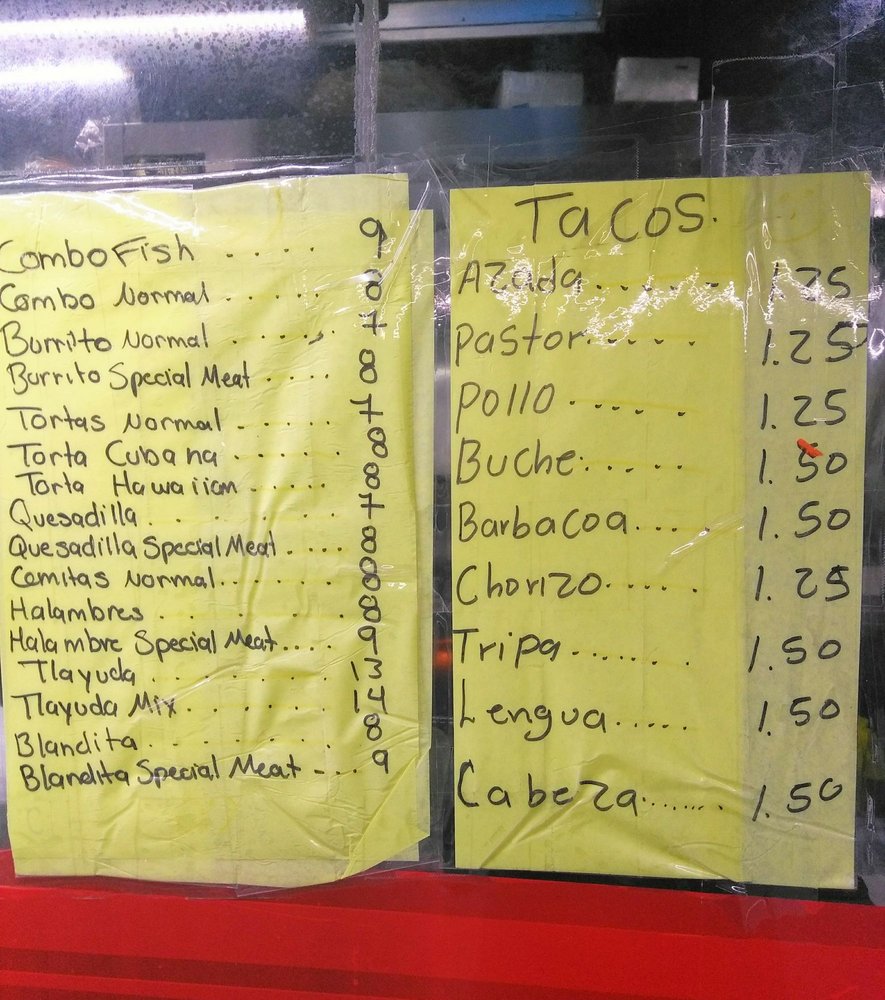 Combo Fish ..... 9
Combo Normal ...... 8
Burrito Normal ....... 7
Burrito Special Meat .... 8
Tortas Normal ...... 7
Torta Cubana ...... 8
Torta Hawaiian ..... 8
Quesadilla ........ 7
Quesadilla Special Meat .... 8
Cemitas Normal ...... 8
Halambres ........ 8
Halambre Special Meat .... 9
Tlayuda ....... 13
Tlayuda Mix ....... 14
Blandita ....... 8
Blandita Special Meat ---. 9
Tacos.
Azada ...... 1.25
Pastor ..... 1.25
Pollo .... 1.25
Buche ..... 1.50
Barbacoa .... 1.50
Chorizo ..... 1.25
Tripa ....... 1.50
Lengua ..... 1.50
Cabeza ...... 1.50